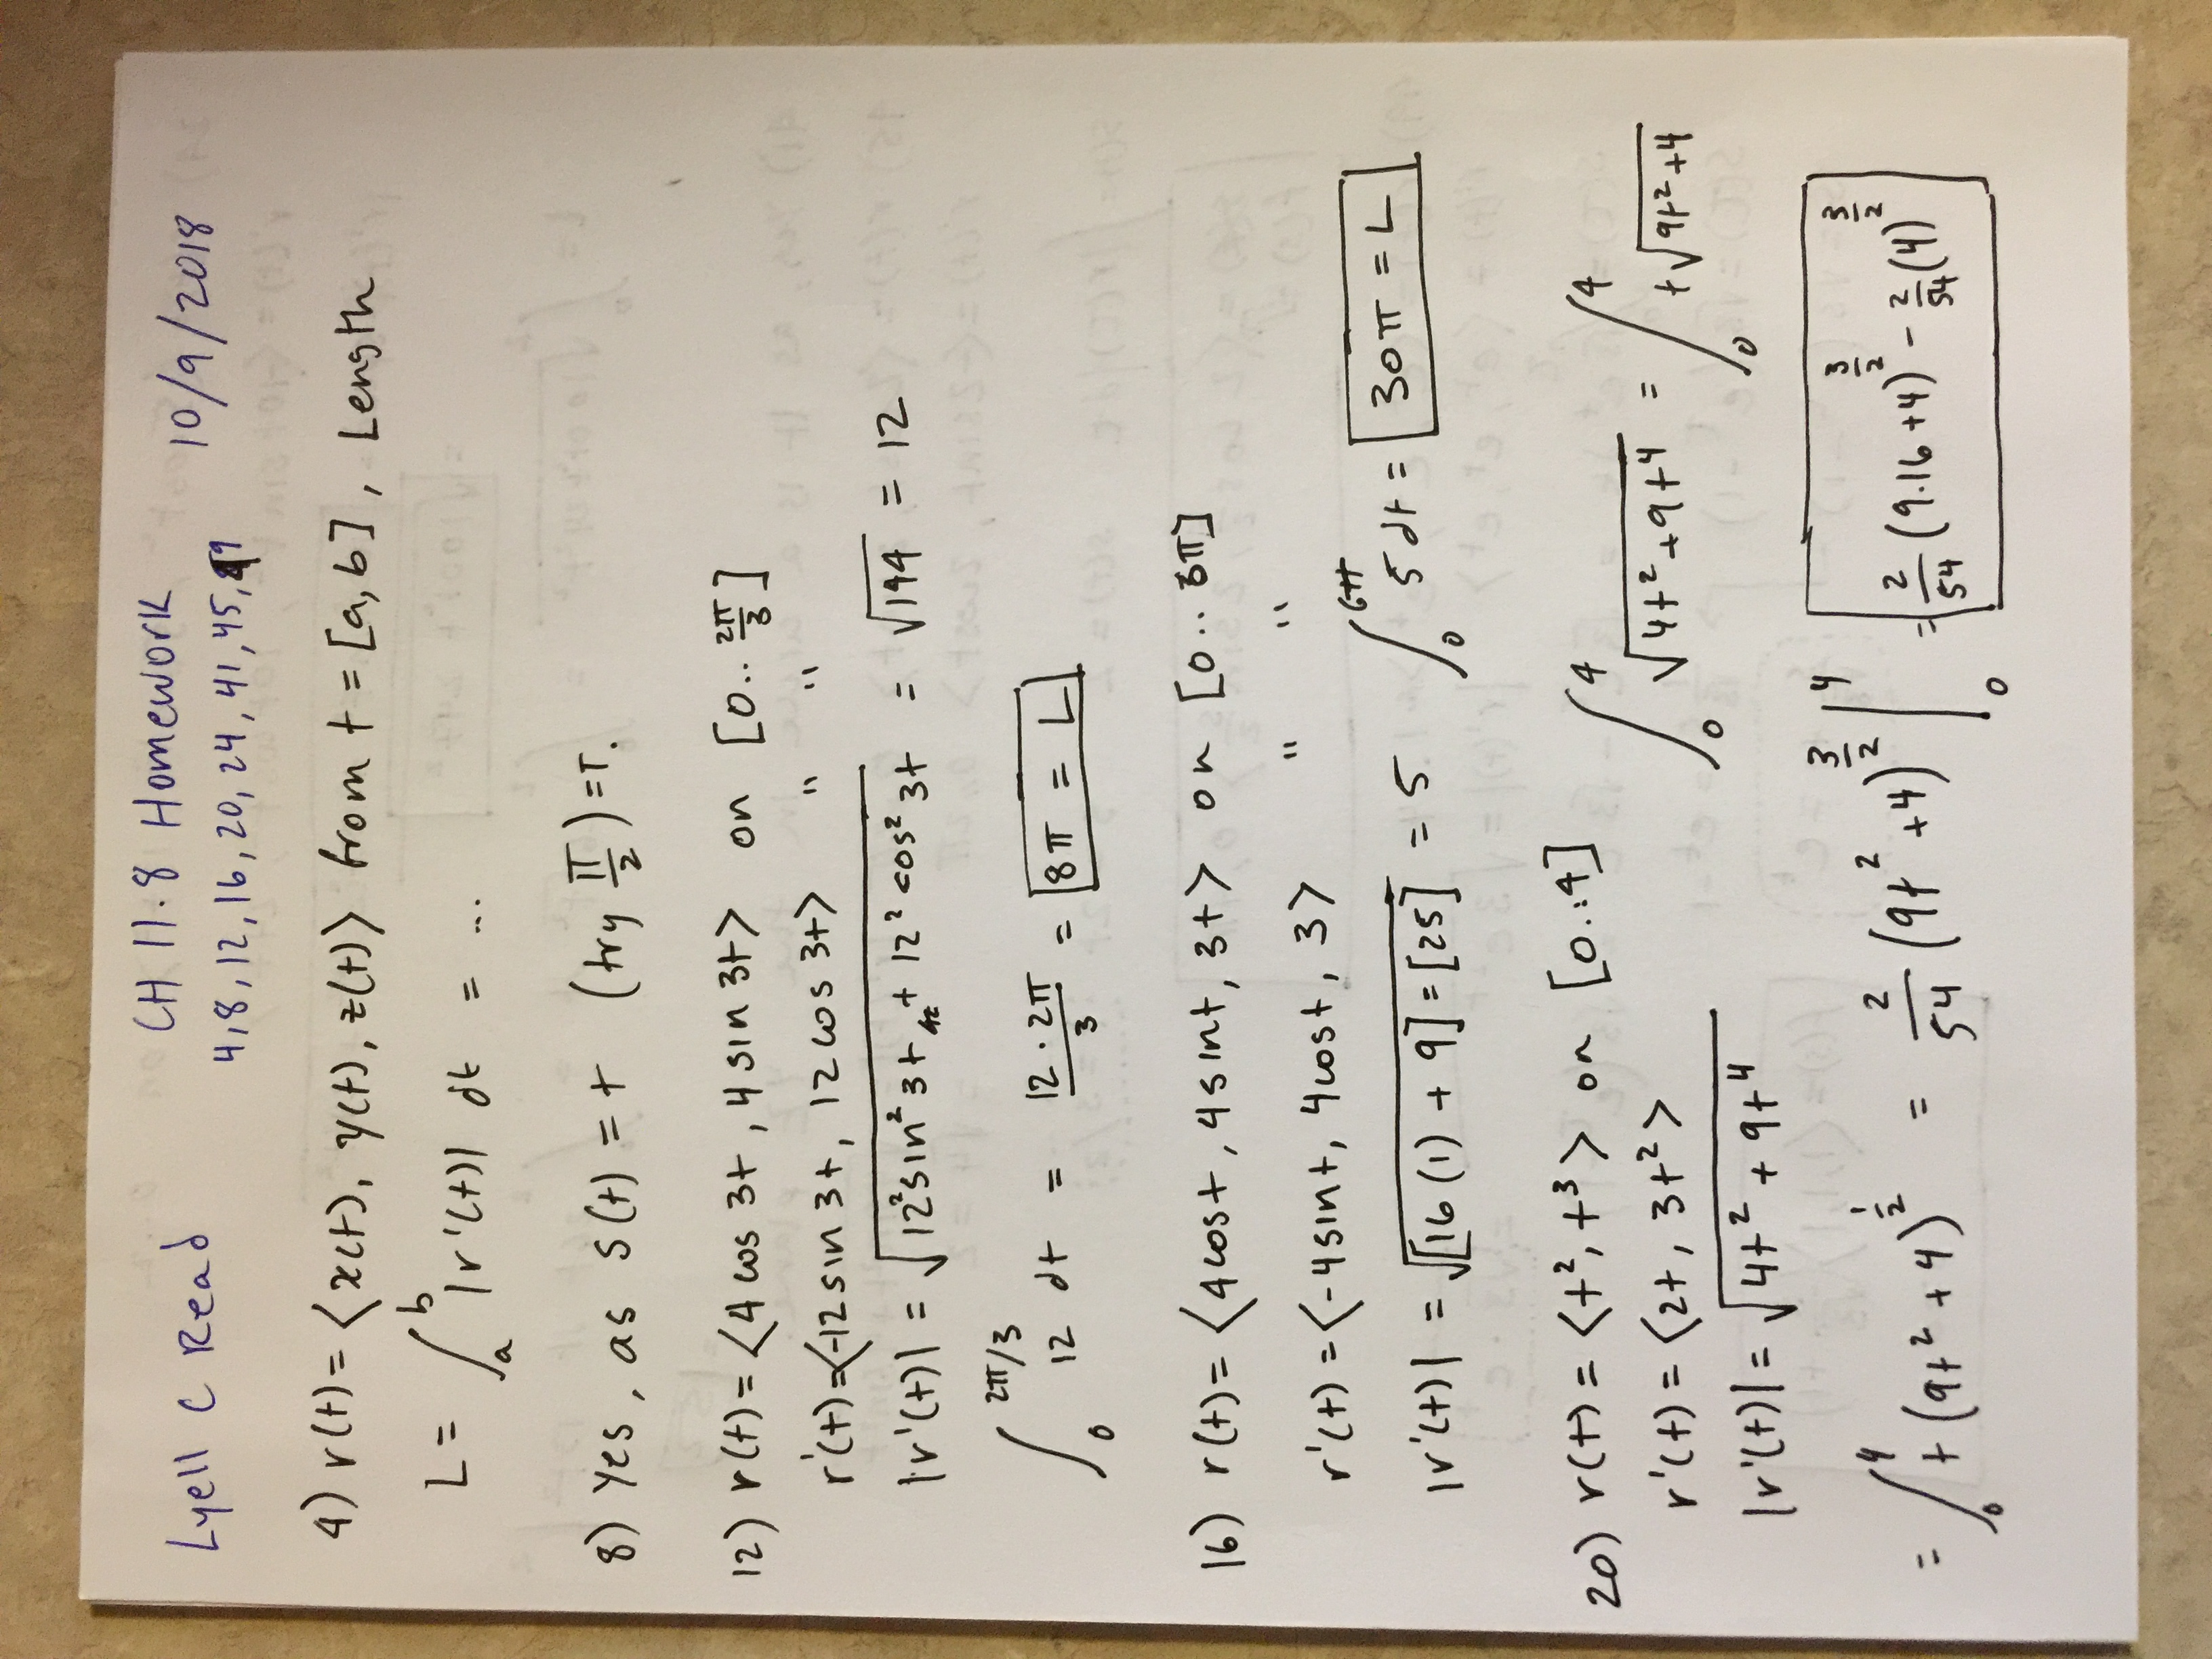 Lyell C Read
CH 11.8 Homework
4,8,12,16,20,24,41,45,49
10/9/2018
4) r(t) = ⟨x(t), y(t), z(t)⟩ from t = [a, b], Length
L = ∫_a^b |r'(t)| dt = ...
8) Yes, as s(t) = t (try π/2) = T.
12) r(t) = ⟨4 cos 3t, 4 sin 3t⟩ on [0.. 2π/3]
r'(t) = ⟨-12 sin 3t, 12 cos 3t⟩ " "
|r'(t)| = √(12² sin² 3t + 12² cos² 3t) = √144 = 12
∫_0^{2π/3} 12 dt = (12 · 2π)/3 = 8π = L
16) r(t) = ⟨4 cos t, 4 sin t, 3t⟩ on [0.. 6π]
r'(t) = ⟨-4 sin t, 4 cos t, 3⟩ " "
|r'(t)| = √([16(1) + 9] = [25]) = 5 ∫_0^{6π} 5 dt = 30π = L
20) r(t) = ⟨t², t³⟩ on [0..4]
r'(t) = ⟨2t, 3t²⟩
|r'(t)| = √(4t² + 9t⁴)
∫_0^4 √(4t² + 9t⁴) = ∫_0^4 t√(9t² + 4)
= ∫_0^4 t(9t² + 4)^{1/2} = 2/54 (9t² + 4)^{3/2} |_0^4 = 2/54 (9·16 + 4)^{3/2} - 2/54 (4)^{3/2}